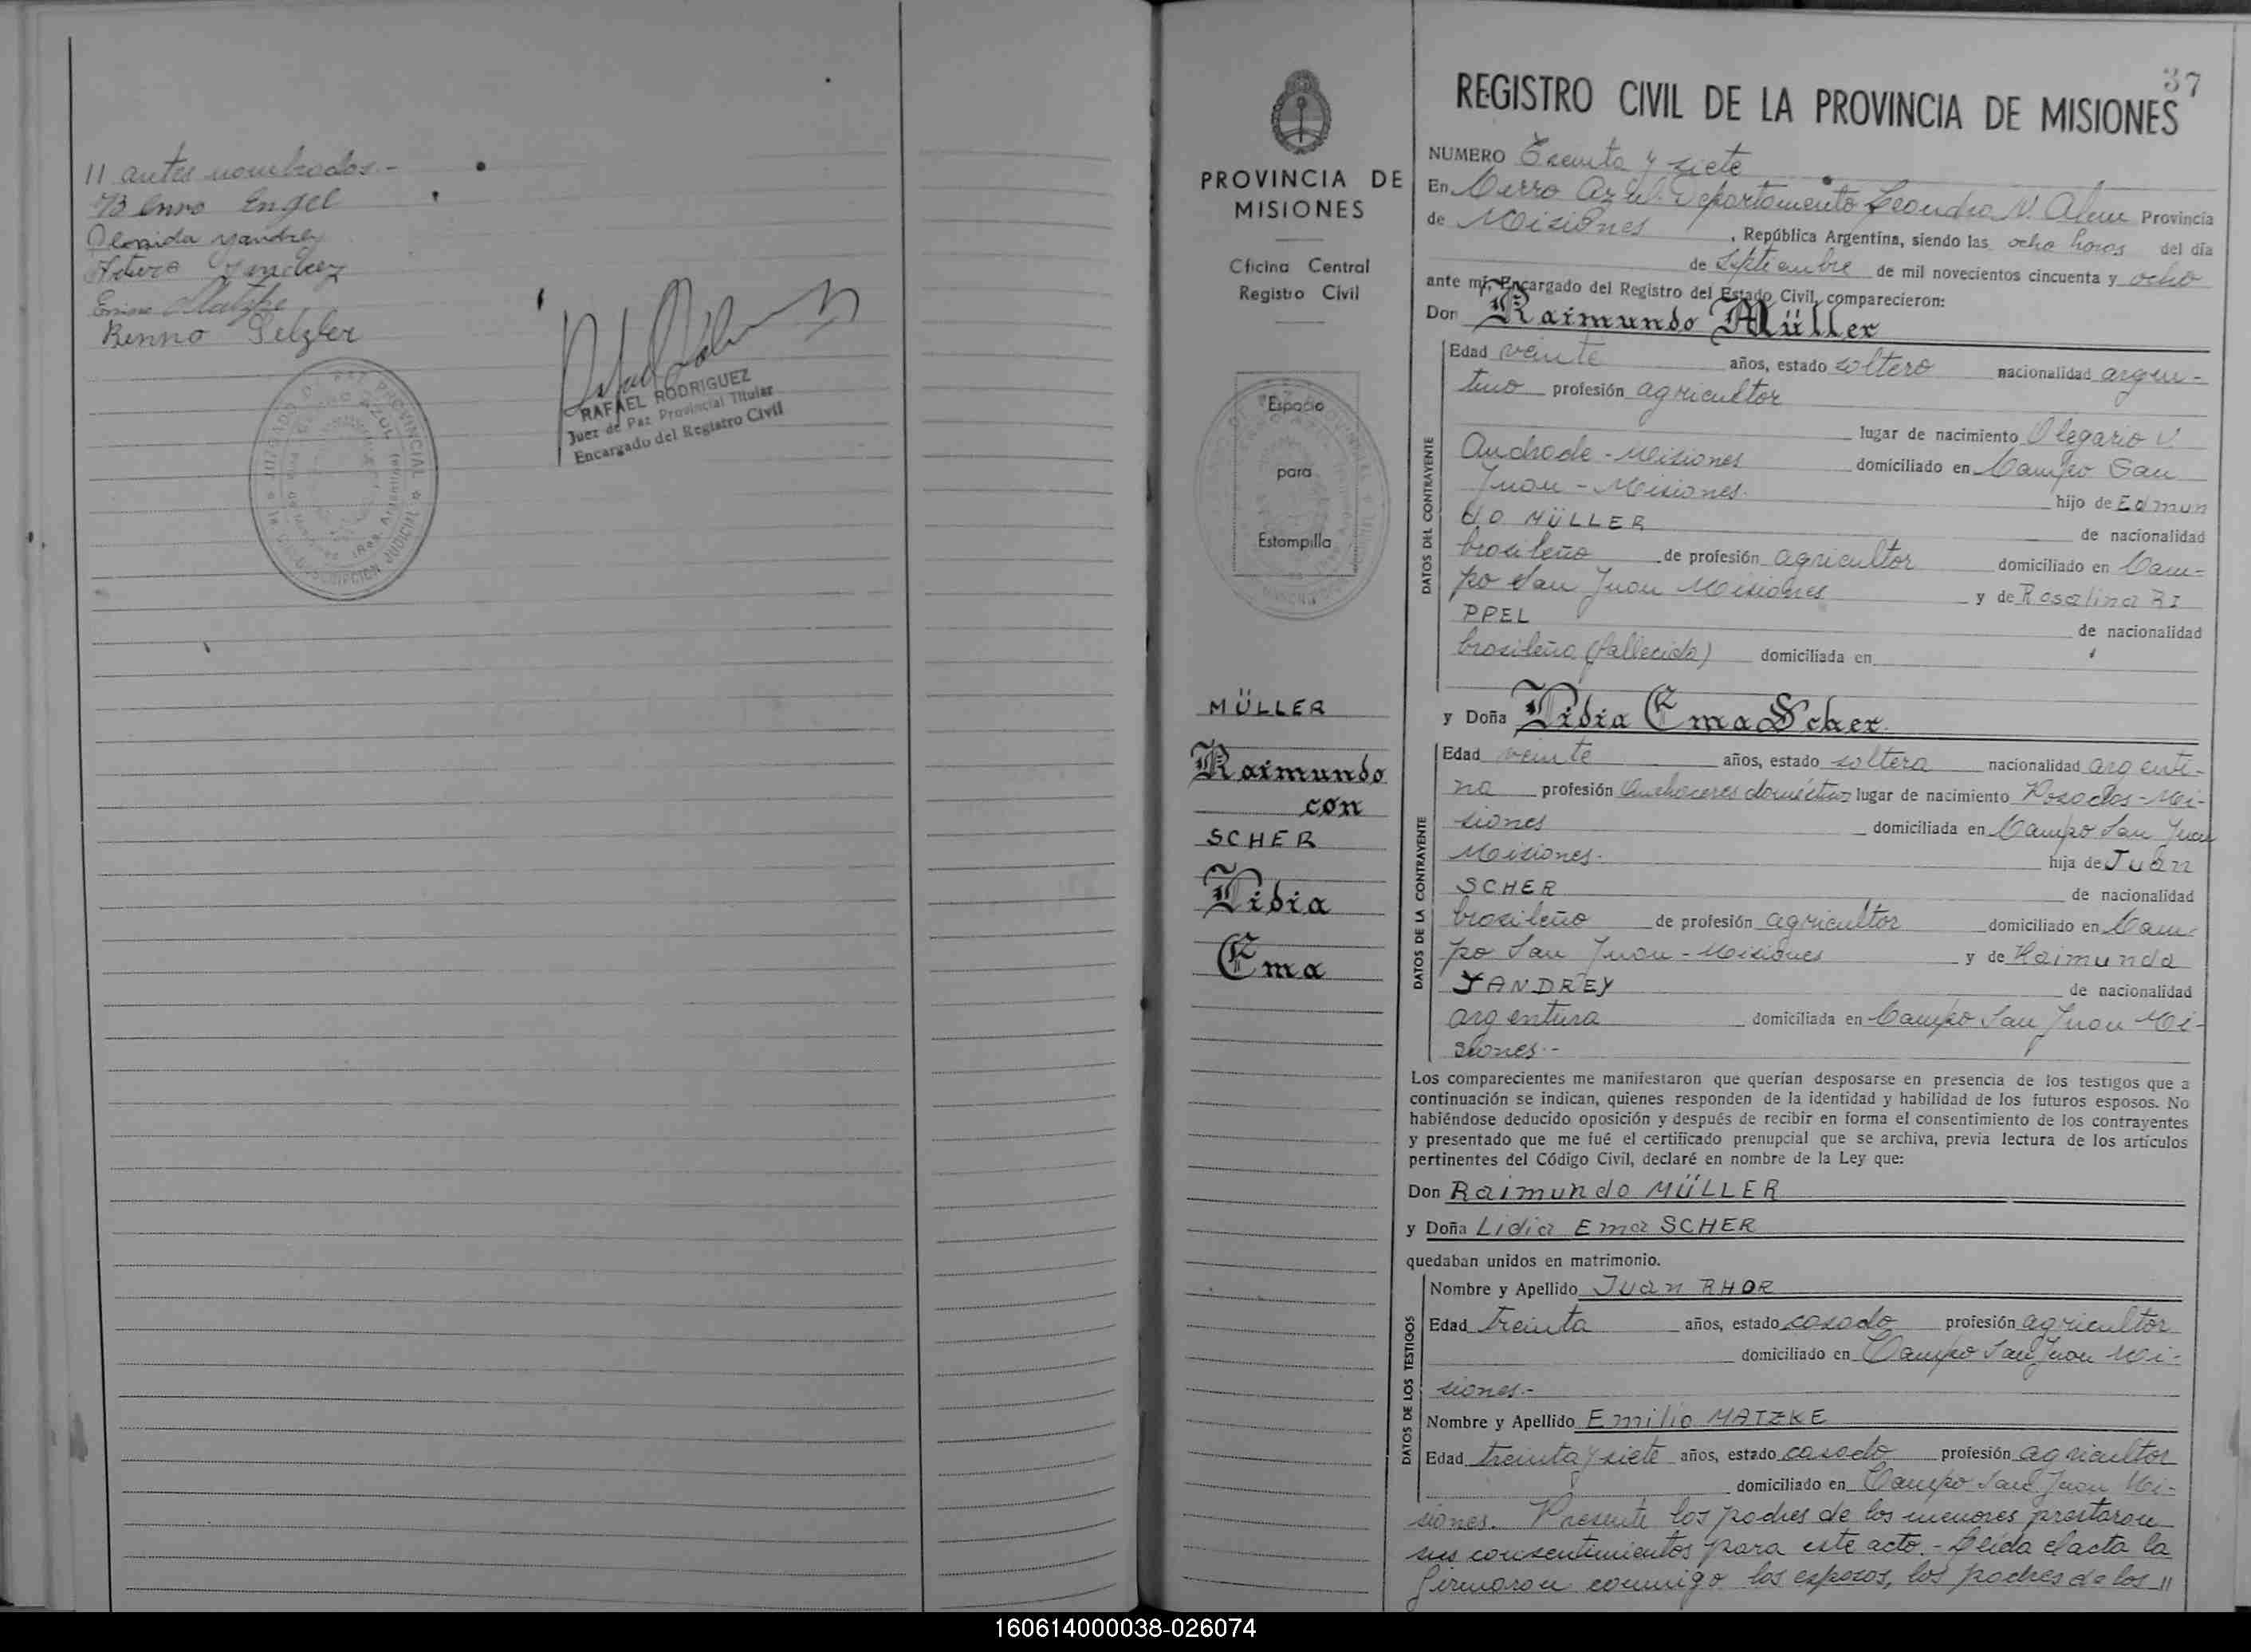 11 antes nombrados.-
Benno Engel
Yandrey
Arturo
Matzke
Benno Selzler
RAFAEL RODRIGUEZ
Juez de Paz Provincial Titular
Encargado del Registro Civil
PROVINCIA DE
MISIONES
Oficina Central
Registro Civil
Espacio
para
Estampilla
MÜLLER
Raimundo
con
SCHER
Lidia
Ema
37
REGISTRO CIVIL DE LA PROVINCIA DE MISIONES
NUMERO Treinta y siete
En Cerro Azul. Departamento Leandro N. Alem Provincia
de Misiones, República Argentina, siendo las ocho horas del día
de Septiembre de mil novecientos cincuenta y ocho
ante mí, Encargado del Registro del Estado Civil, comparecieron:
Don Raimundo Müller
Edad veinte años, estado soltero nacionalidad argen-
tino profesión agricultor
lugar de nacimiento Olegario V.
Andrade - Misiones domiciliado en Campo San
Juan - Misiones. hijo de Edmun
do MÜLLER de nacionalidad
brasileño de profesión agricultor domiciliado en Cam-
po San Juan Misiones y de Rosalina RI
PPEL de nacionalidad
brasileña (fallecida) domiciliada en
DATOS DEL CONTRAYENTE
y Doña Lidia Ema Scher
Edad veinte años, estado soltera nacionalidad argenti-
na profesión Quehaceres domésticos lugar de nacimiento Posadas - Mi-
siones domiciliada en Campo San Juan
Misiones. hija de Juan
SCHER de nacionalidad
brasileño de profesión agricultor domiciliado en Cam-
po San Juan - Misiones y de Raimunda
YANDREY de nacionalidad
argentina domiciliada en Campo San Juan Mi-
siones.-
DATOS DE LA CONTRAYENTE
Los comparecientes me manifestaron que querían desposarse en presencia de los testigos que a
continuación se indican, quienes responden de la identidad y habilidad de los futuros esposos. No
habiéndose deducido oposición y después de recibir en forma el consentimiento de los contrayentes
y presentado que me fué el certificado prenupcial que se archiva, previa lectura de los artículos
pertinentes del Código Civil, declaré en nombre de la Ley que:
Don Raimundo MÜLLER
y Doña Lidia Ema SCHER
quedaban unidos en matrimonio.
Nombre y Apellido Juan RHOR
Edad treinta años, estado casado profesión agricultor
domiciliado en Campo San Juan Mi-
siones.-
Nombre y Apellido Emilio MATZKE
Edad treinta y siete años, estado casado profesión agricultor
domiciliado en Campo San Juan Mi-
DATOS DE LOS TESTIGOS
siones. Presente los padres de los menores prestaron
sus consentimientos para este acto.- Leída el acta la
firmaron conmigo los esposos, los padres de los 11
160614000038-026074